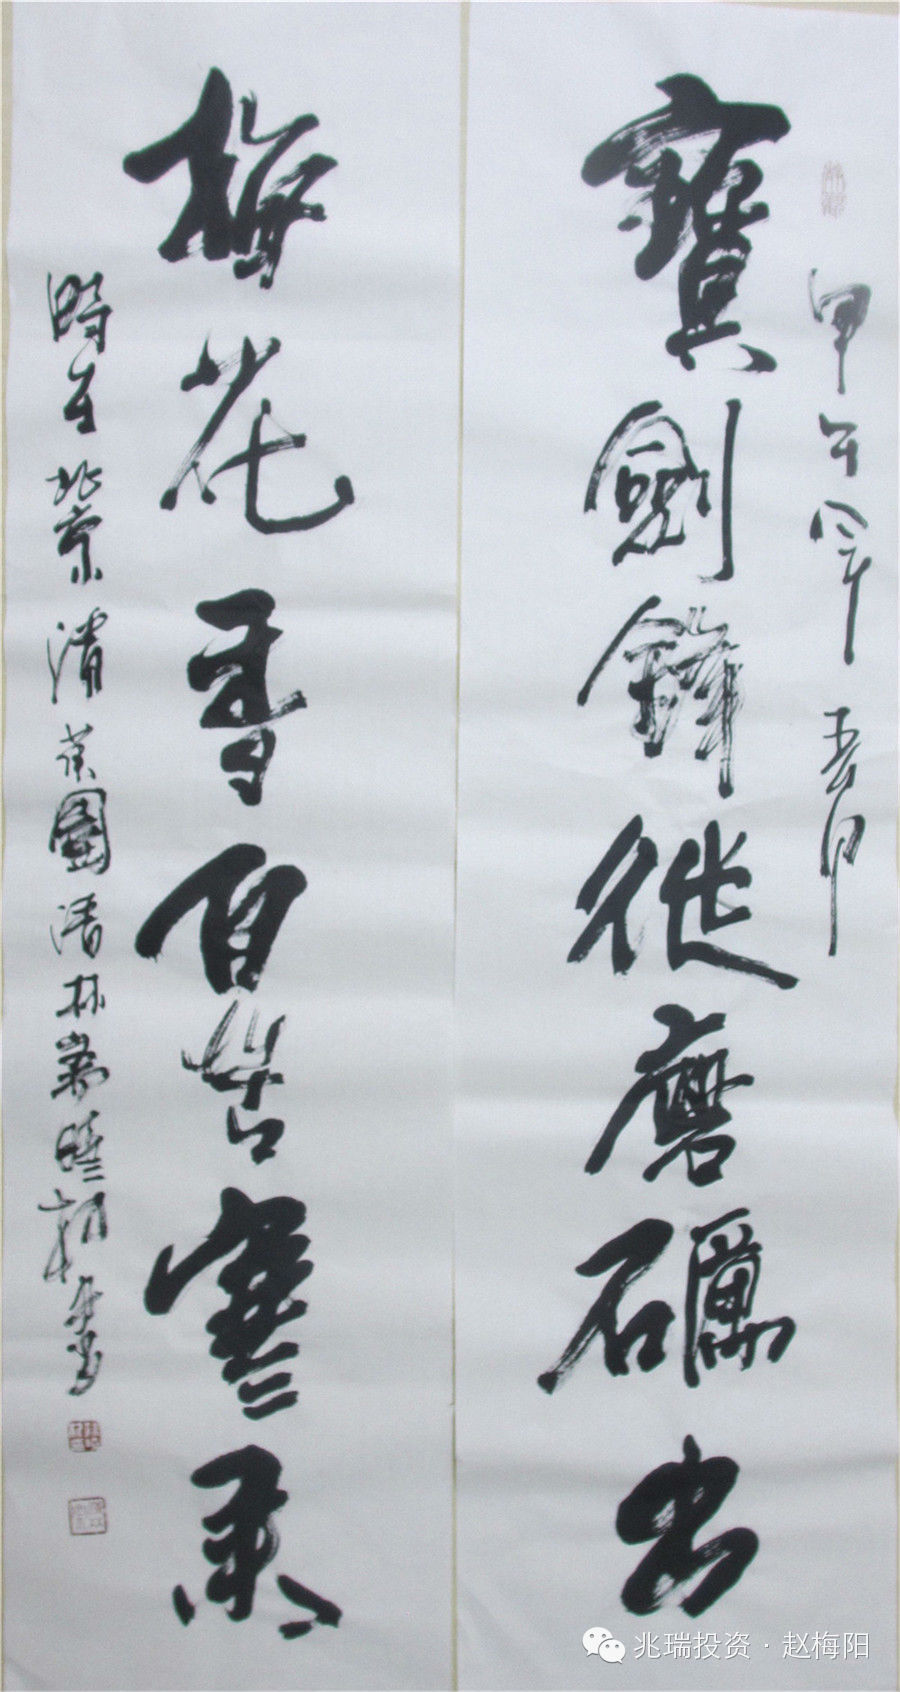 甲午年五月
寶劍鋒從磨礪出
梅花香自苦寒来
時在北京清華園清林
兆瑞投资·赵梅阳